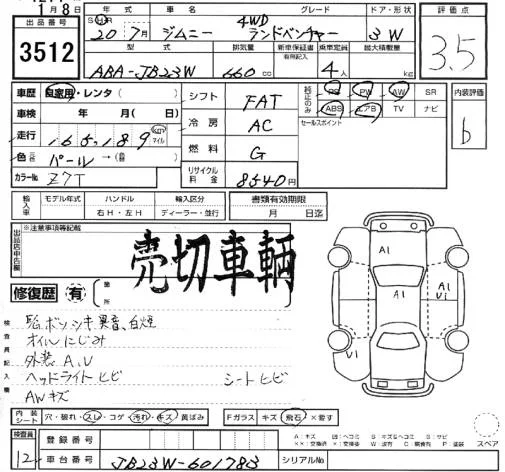 1月8日
出品番号
3512
年式 車名 グレード ドア・形状
20年7月 ジムニー 4WD ランドベンチャー 3W
型式 排気量 新車保証書 有用記入 乗車定員 最大積載量
ABA-JB23W 660cc 4人 kg
評価点
3.5
車歴 自家用・レンタ( )
シフト FAT
純正のみ PS PW AW SR
ABS エアB TV ナビ
内装評価
b
車検 年 月( 日)
冷房 AC
セールスポイント
走行 165,189 km マイル
燃料 G
色 パール→
カラーNo Z7T
リサイクル料金 8540円
輸入車 モデル年式 ハンドル 輸入区分
年 右H・左H ディーラー・並行
書類有効期限
月 日迄
出品店申告欄
※注意事項等記載
売切車輌
修復歴 有
箇所
検査員記入欄
オイルにじみ
外装A,U
ヘッドライトヒビ シートヒビ
AWキズ
A1
A1
A1
U1
U1
内装シート 穴・破れ・スレ・コゲ・汚れ・キズ・黄ばみ
Fガラス キズ・飛石・×要す
スペア
検査員
12
登録番号
車台番号 JB23W-601783
シリアルNo